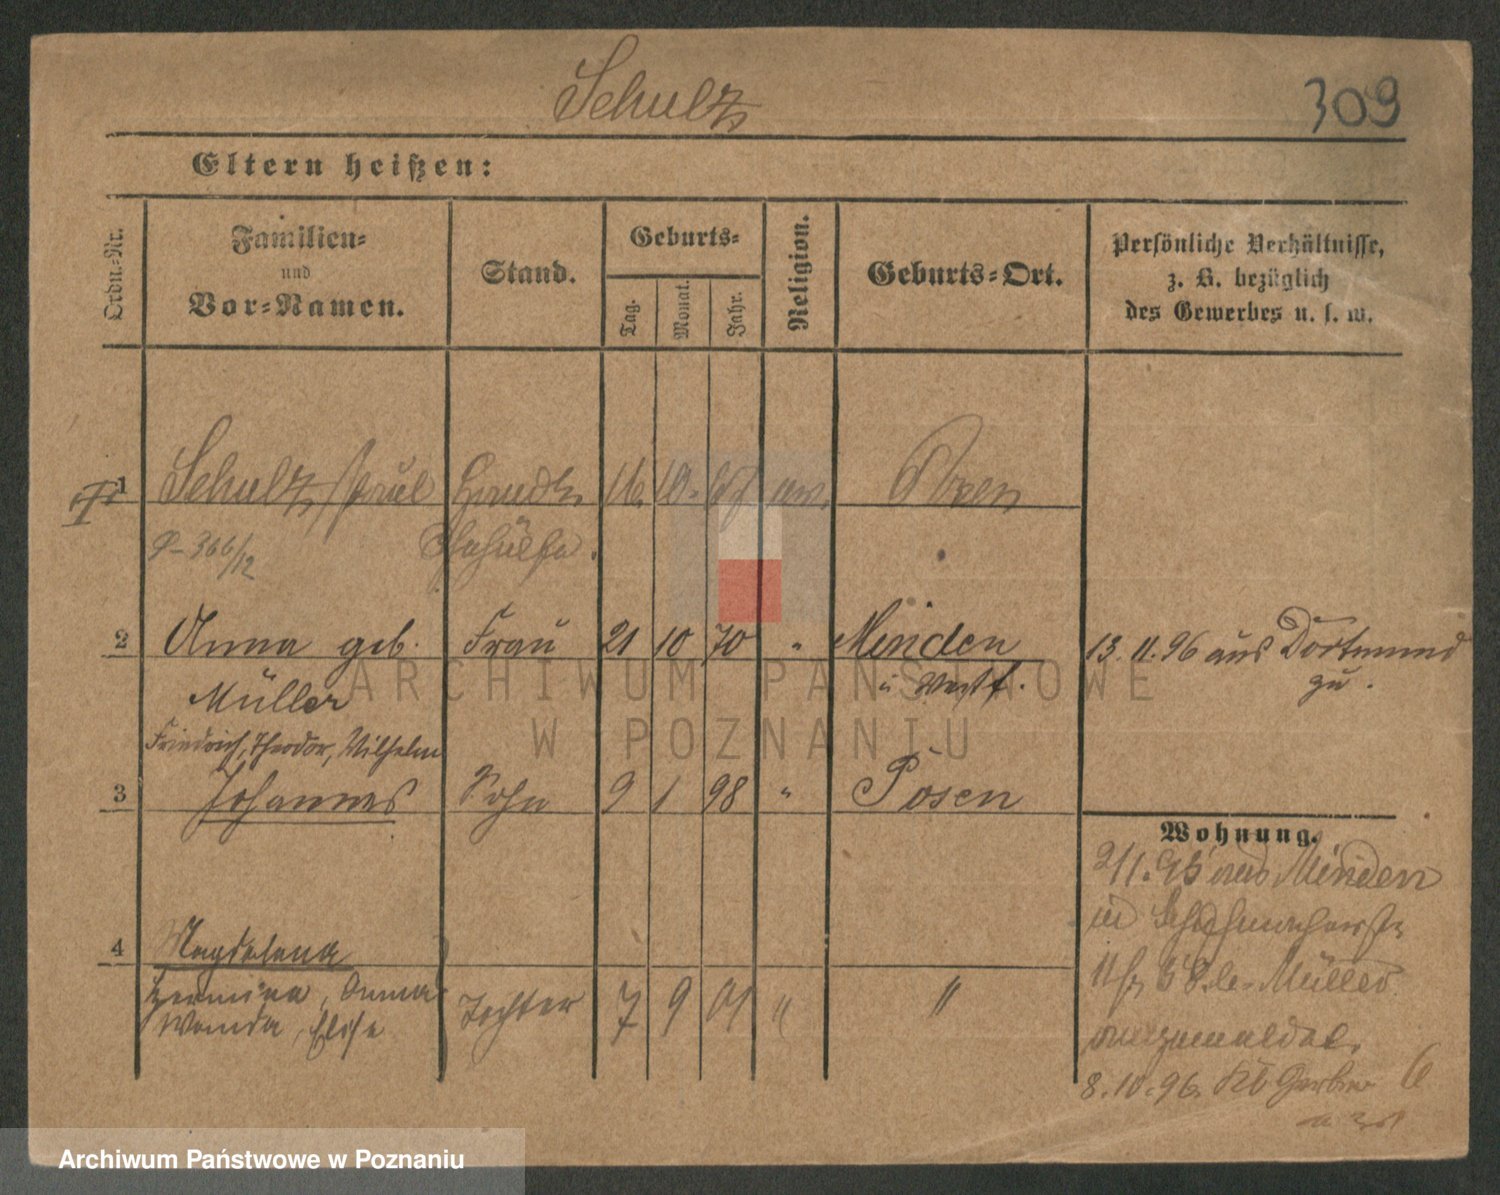 Schulz
309
Eltern heißen:
Ordn.-Nr.
Familien-
und
Vor-Namen.
Stand.
Geburts-
Tag.
Monat.
Jahr.
Religion.
Geburts-Ort.
Persönliche Verhältnisse,
z. B. bezüglich
des Gewerbes u. s. w.
1 Schulz, Paul Handl. 16. 10. 67 ev. Posen
366/12 Gehülfe.
2 Anna geb. Frau 21 10 70 " Minden 13.11.96 aus Dortmund
Müller i Westf. zu.
Friedrich, Theodor, Wilhelm
3 Johannes Sohn 9 1 98 " Posen
Wohnung.
2/1. 95 aus Minden
in
4 Magdalena
11 b. Müller
Hermina, Anna Tochter 7 9 01 " "
Wanda, Elise
angemeldet.
8.10.96. Kl. Gerber 6
ARCHIWUM PAŃSTWOWE
W POZNANIU
Archiwum Państwowe w Poznaniu